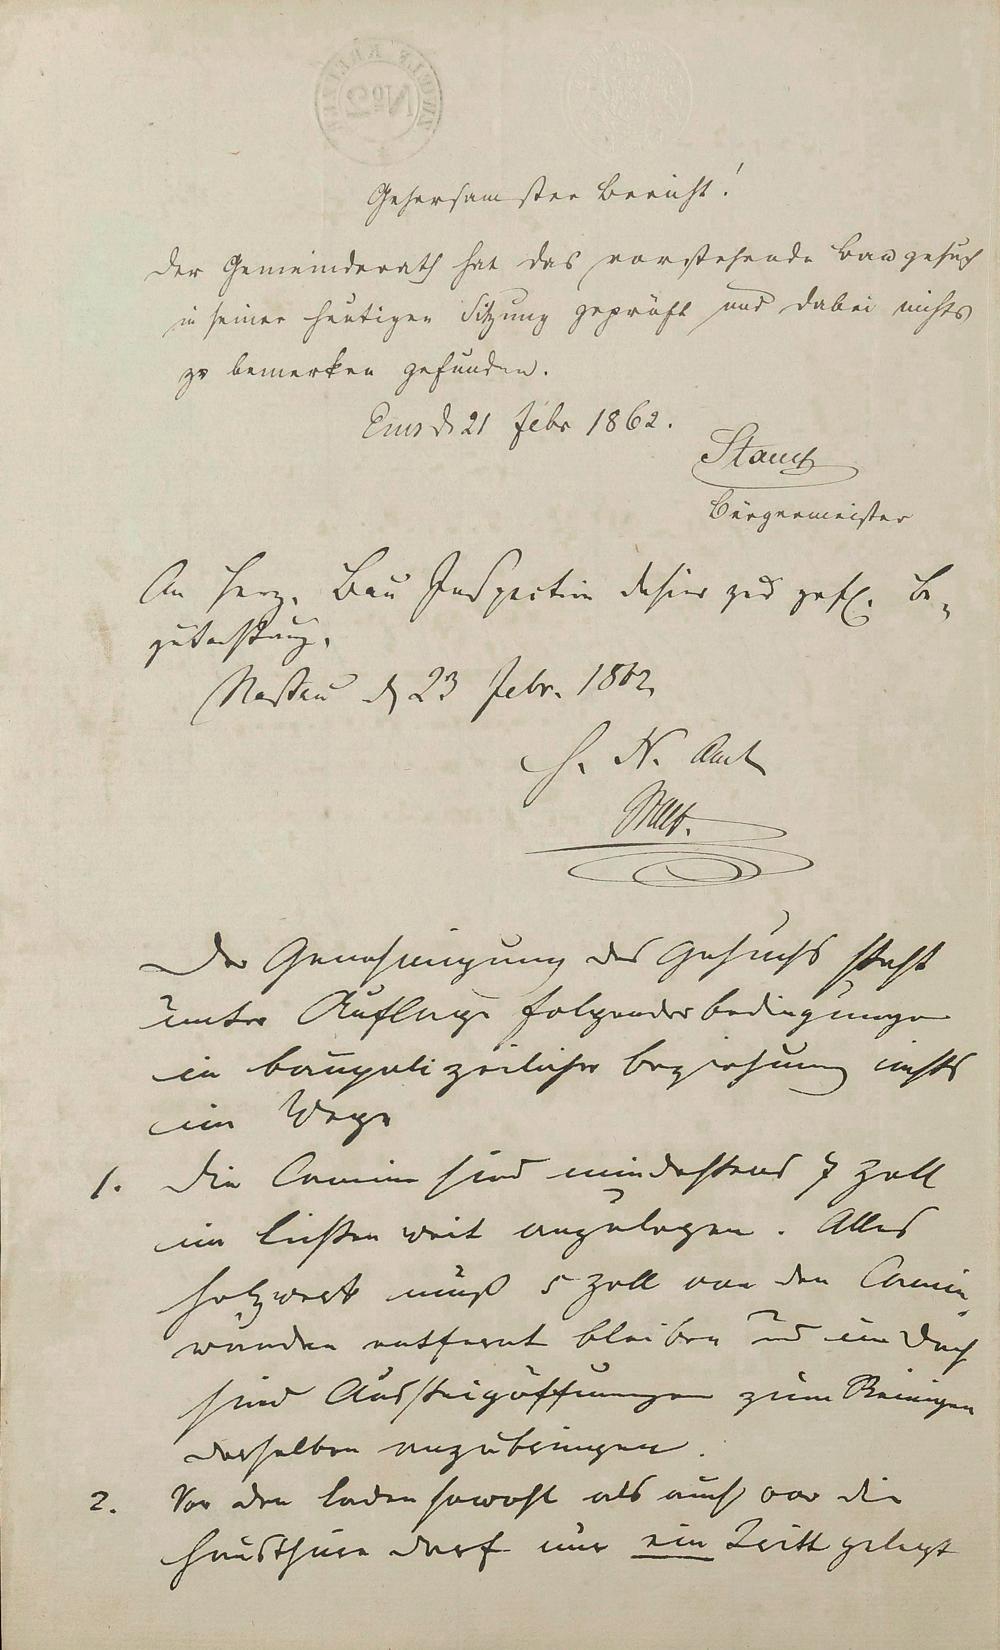 No 2
Gehorsamster Bericht!
Der Gemeinderath hat das vorstehende Baugesuch
in seiner heutigen Sitzung geprüft und dabei nichts
zu bemerken gefunden.
Ems d 21 Febr 1862.
Bürgermeister
An Herz. Bau Inspection dahier zur gefl. Be-
gutachtung.
Nassau d 23 Febr. 1862.
H. N. Amt
Der Genehmigung des Gesuchs steht
unter Auflage folgender Bedingungen
in baupolizeilicher Beziehung nichts
im Wege
1. Die Camine sind mindestens 7 Zoll
im Lichten weit anzulegen. Alles
Holzwerk muß 5 Zoll von den Camin-
wänden entfernt bleiben und im Dach
sind Aussteigöffnungen zum Reinigen
derselben anzubringen.
2. Vor den Laden sowohl als auch vor die
Hausthüre darf nur ein Tritt gelegt